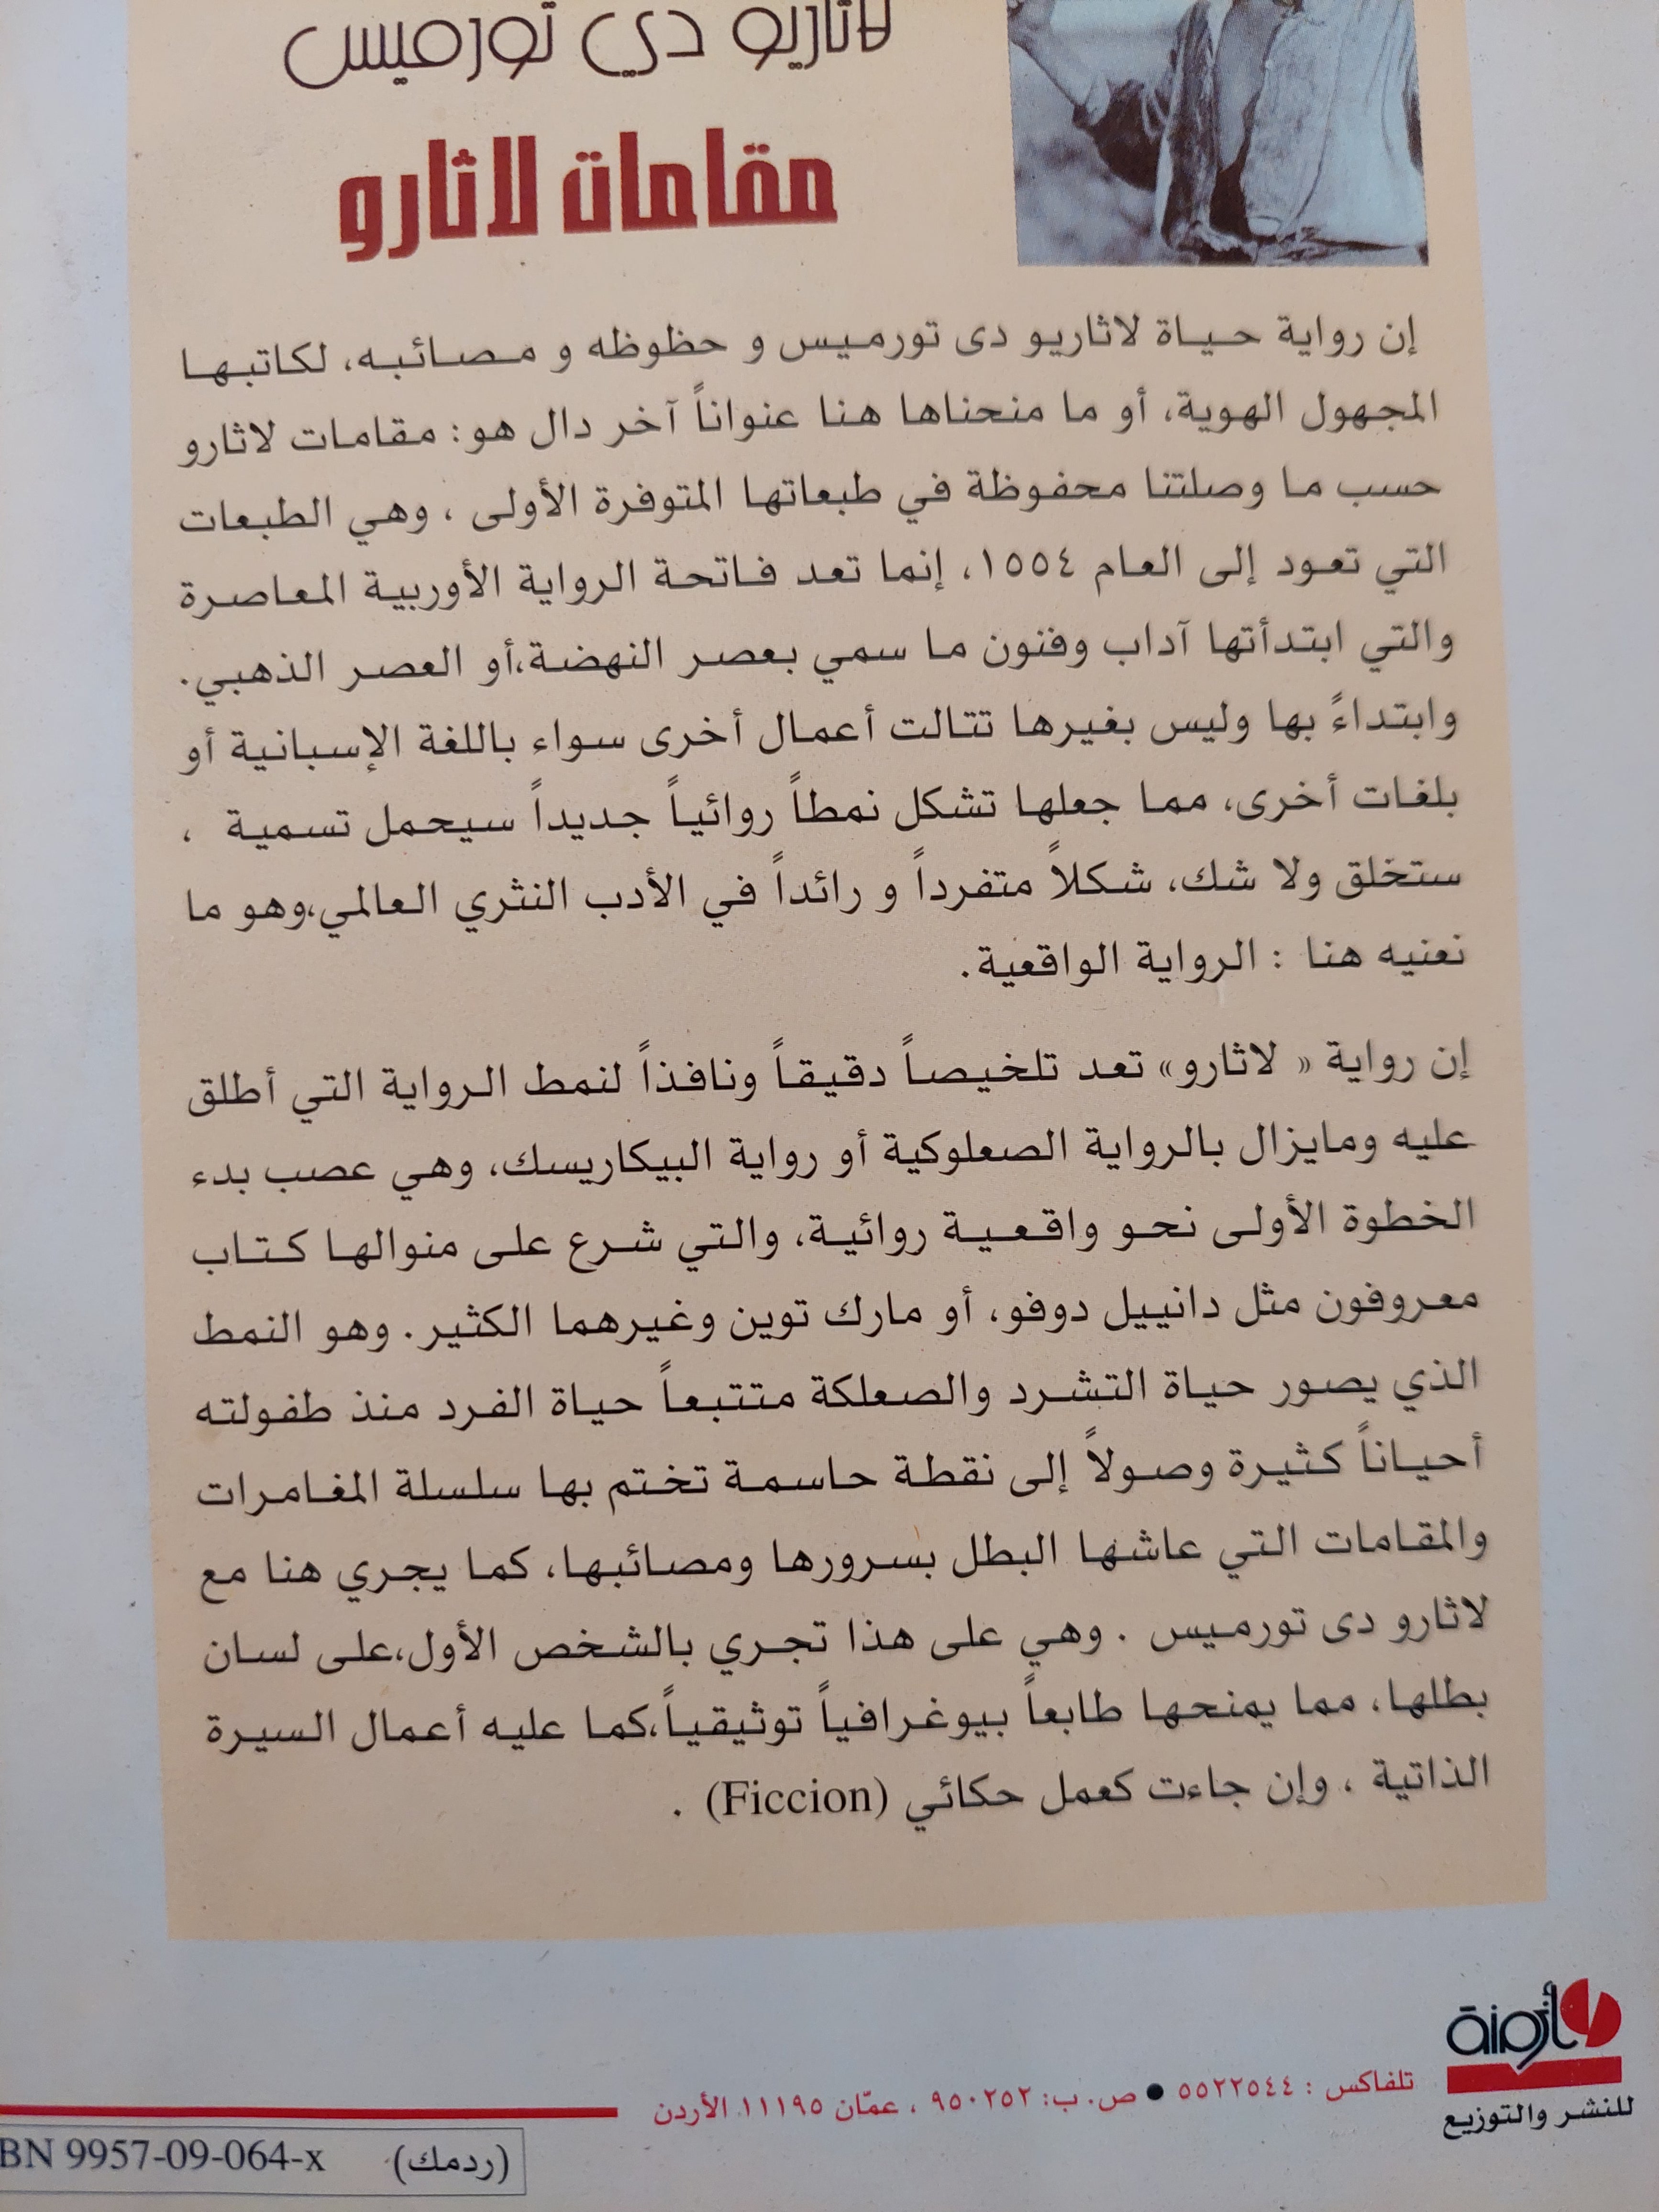 لاثاريو دي تورميس
مقامات لاثارو
إن رواية حياة لاثاريو دى تورميس و حظوظه و مصائبه، لكاتبها
المجهول الهوية، أو ما منحناها هنا عنواناً آخر دال هو: مقامات لاثارو
حسب ما وصلتنا محفوظة في طبعاتها المتوفرة الأولى ، وهي الطبعات
التي تعود إلى العام ١٥٥٤، إنما تعد فاتحة الرواية الأوربية المعاصرة
والتي ابتدأتها آداب وفنون ما سمي بعصر النهضة،أو العصر الذهبي.
وابتداءً بها وليس بغيرها تتالت أعمال أخرى سواء باللغة الإسبانية أو
بلغات أخرى، مما جعلها تشكل نمطاً روائياً جديداً سيحمل تسمية ،
ستخلق ولا شك، شكلاً متفرداً و رائداً في الأدب النثري العالمي،وهو ما
نعنيه هنا : الرواية الواقعية.
إن رواية « لاثارو» تعد تلخيصاً دقيقاً ونافذاً لنمط الرواية التي أطلق
عليه ومايزال بالرواية الصعلوكية أو رواية البيكاريسك، وهي عصب بدء
الخطوة الأولى نحو واقعية روائية، والتي شرع على منوالها كتاب
معروفون مثل دانييل دوفو، أو مارك توين وغيرهما الكثير. وهو النمط
الذي يصور حياة التشرد والصعلكة متتبعاً حياة الفرد منذ طفولته
أحياناً كثيرة وصولاً إلى نقطة حاسمة تختم بها سلسلة المغامرات
والمقامات التي عاشها البطل بسرورها ومصائبها، كما يجري هنا مع
لاثارو دى تورميس . وهي على هذا تجري بالشخص الأول،على لسان
بطلها، مما يمنحها طابعاً بيوغرافياً توثيقياً،كما عليه أعمال السيرة
الذاتية ، وإن جاءت كعمل حكائي (Ficcion) .
أزمنة
للنشر والتوزيع
تلفاكس : ٥٥٢٢٥٤٤ ● ص. ب: ٩٥٠٢٥٢ ، عمّان ١١١٩٥ الأردن
BN 9957-09-064-x (ردمك)